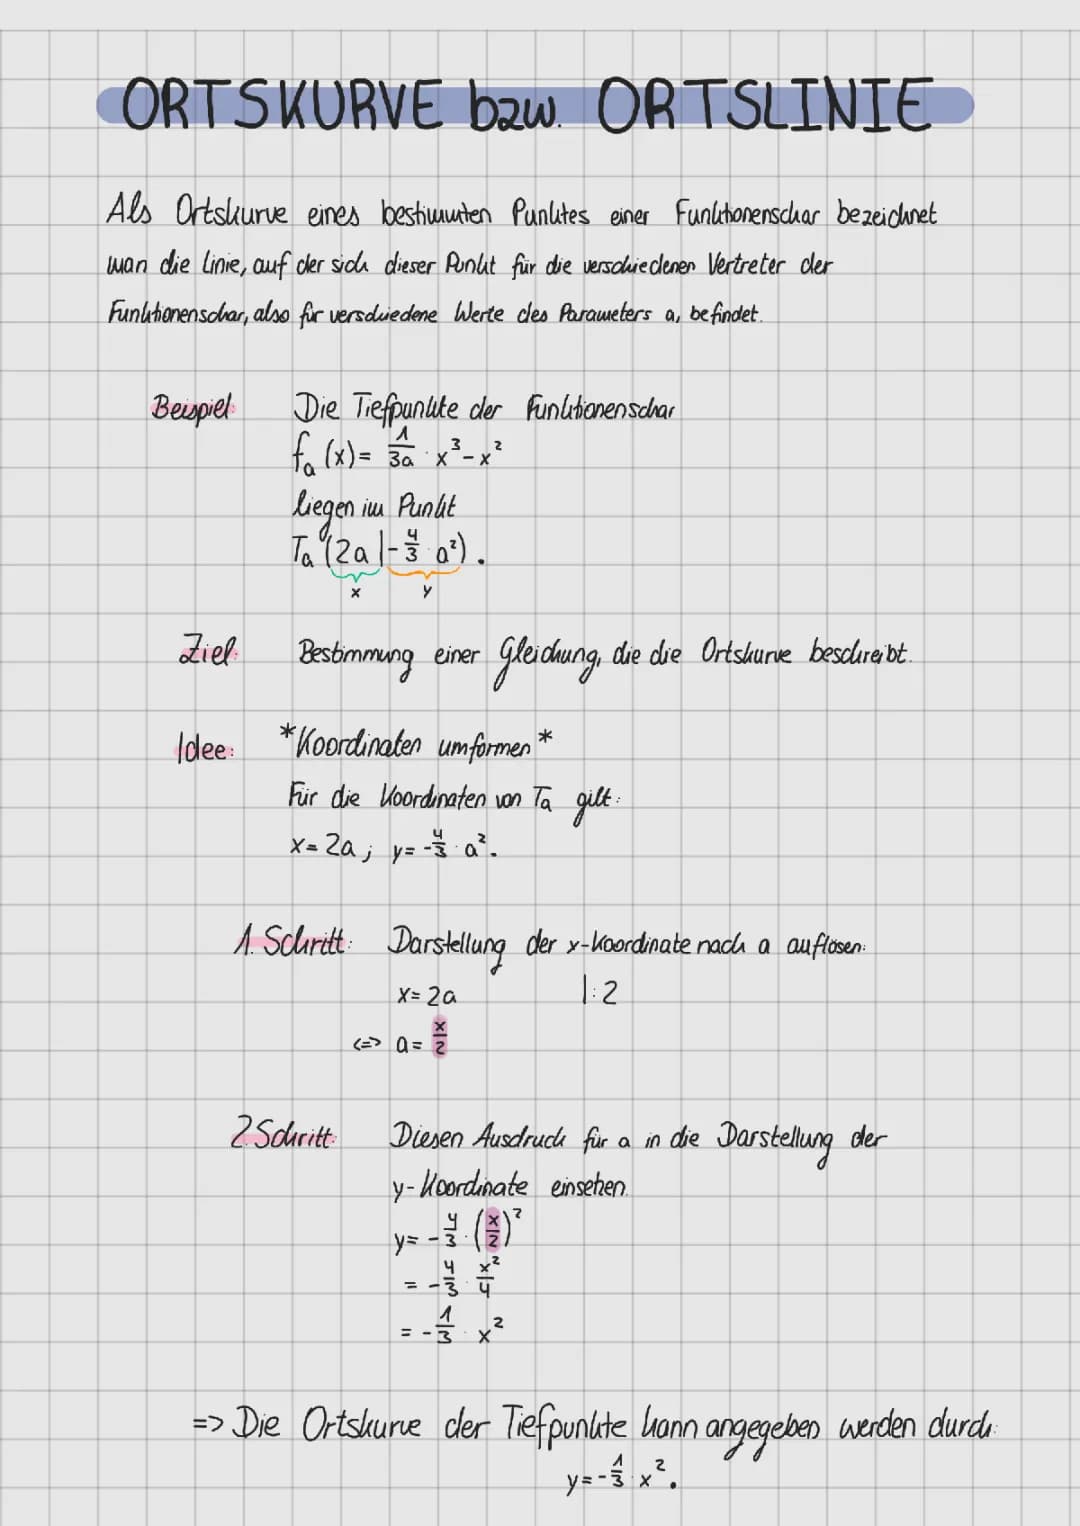 ORTSKURVE bzw. ORTSLINIE
Als Ortskurve eines bestimmten Punktes einer Funktionenschar bezeichnet
man die Linie, auf der sich dieser Punkt für die verschiedenen Vertreter der
Funktionenschar, also für verschiedene Werte des Parameters a, befindet.
Beispiel: Die Tiefpunkte der Funktionenschar
fₐ(x) = 1/3a · x³ - x²
liegen im Punkt
Tₐ (2a | -4/3 · a²).
x y
Ziel: Bestimmung einer Gleichung, die die Ortskurve beschreibt.
Idee: *Koordinaten umformen*
Für die Koordinaten von Tₐ gilt:
x = 2a ; y = -4/3 · a².
1. Schritt: Darstellung der x-Koordinate nach a auflösen:
x = 2a |:2
<=> a = x/2
2. Schritt: Diesen Ausdruck für a in die Darstellung der
y-Koordinate einsetzen.
y = -4/3 · (x/2)²
= -4/3 · x²/4
= -1/3 · x²
=> Die Ortskurve der Tiefpunkte kann angegeben werden durch:
y = -1/3 · x².